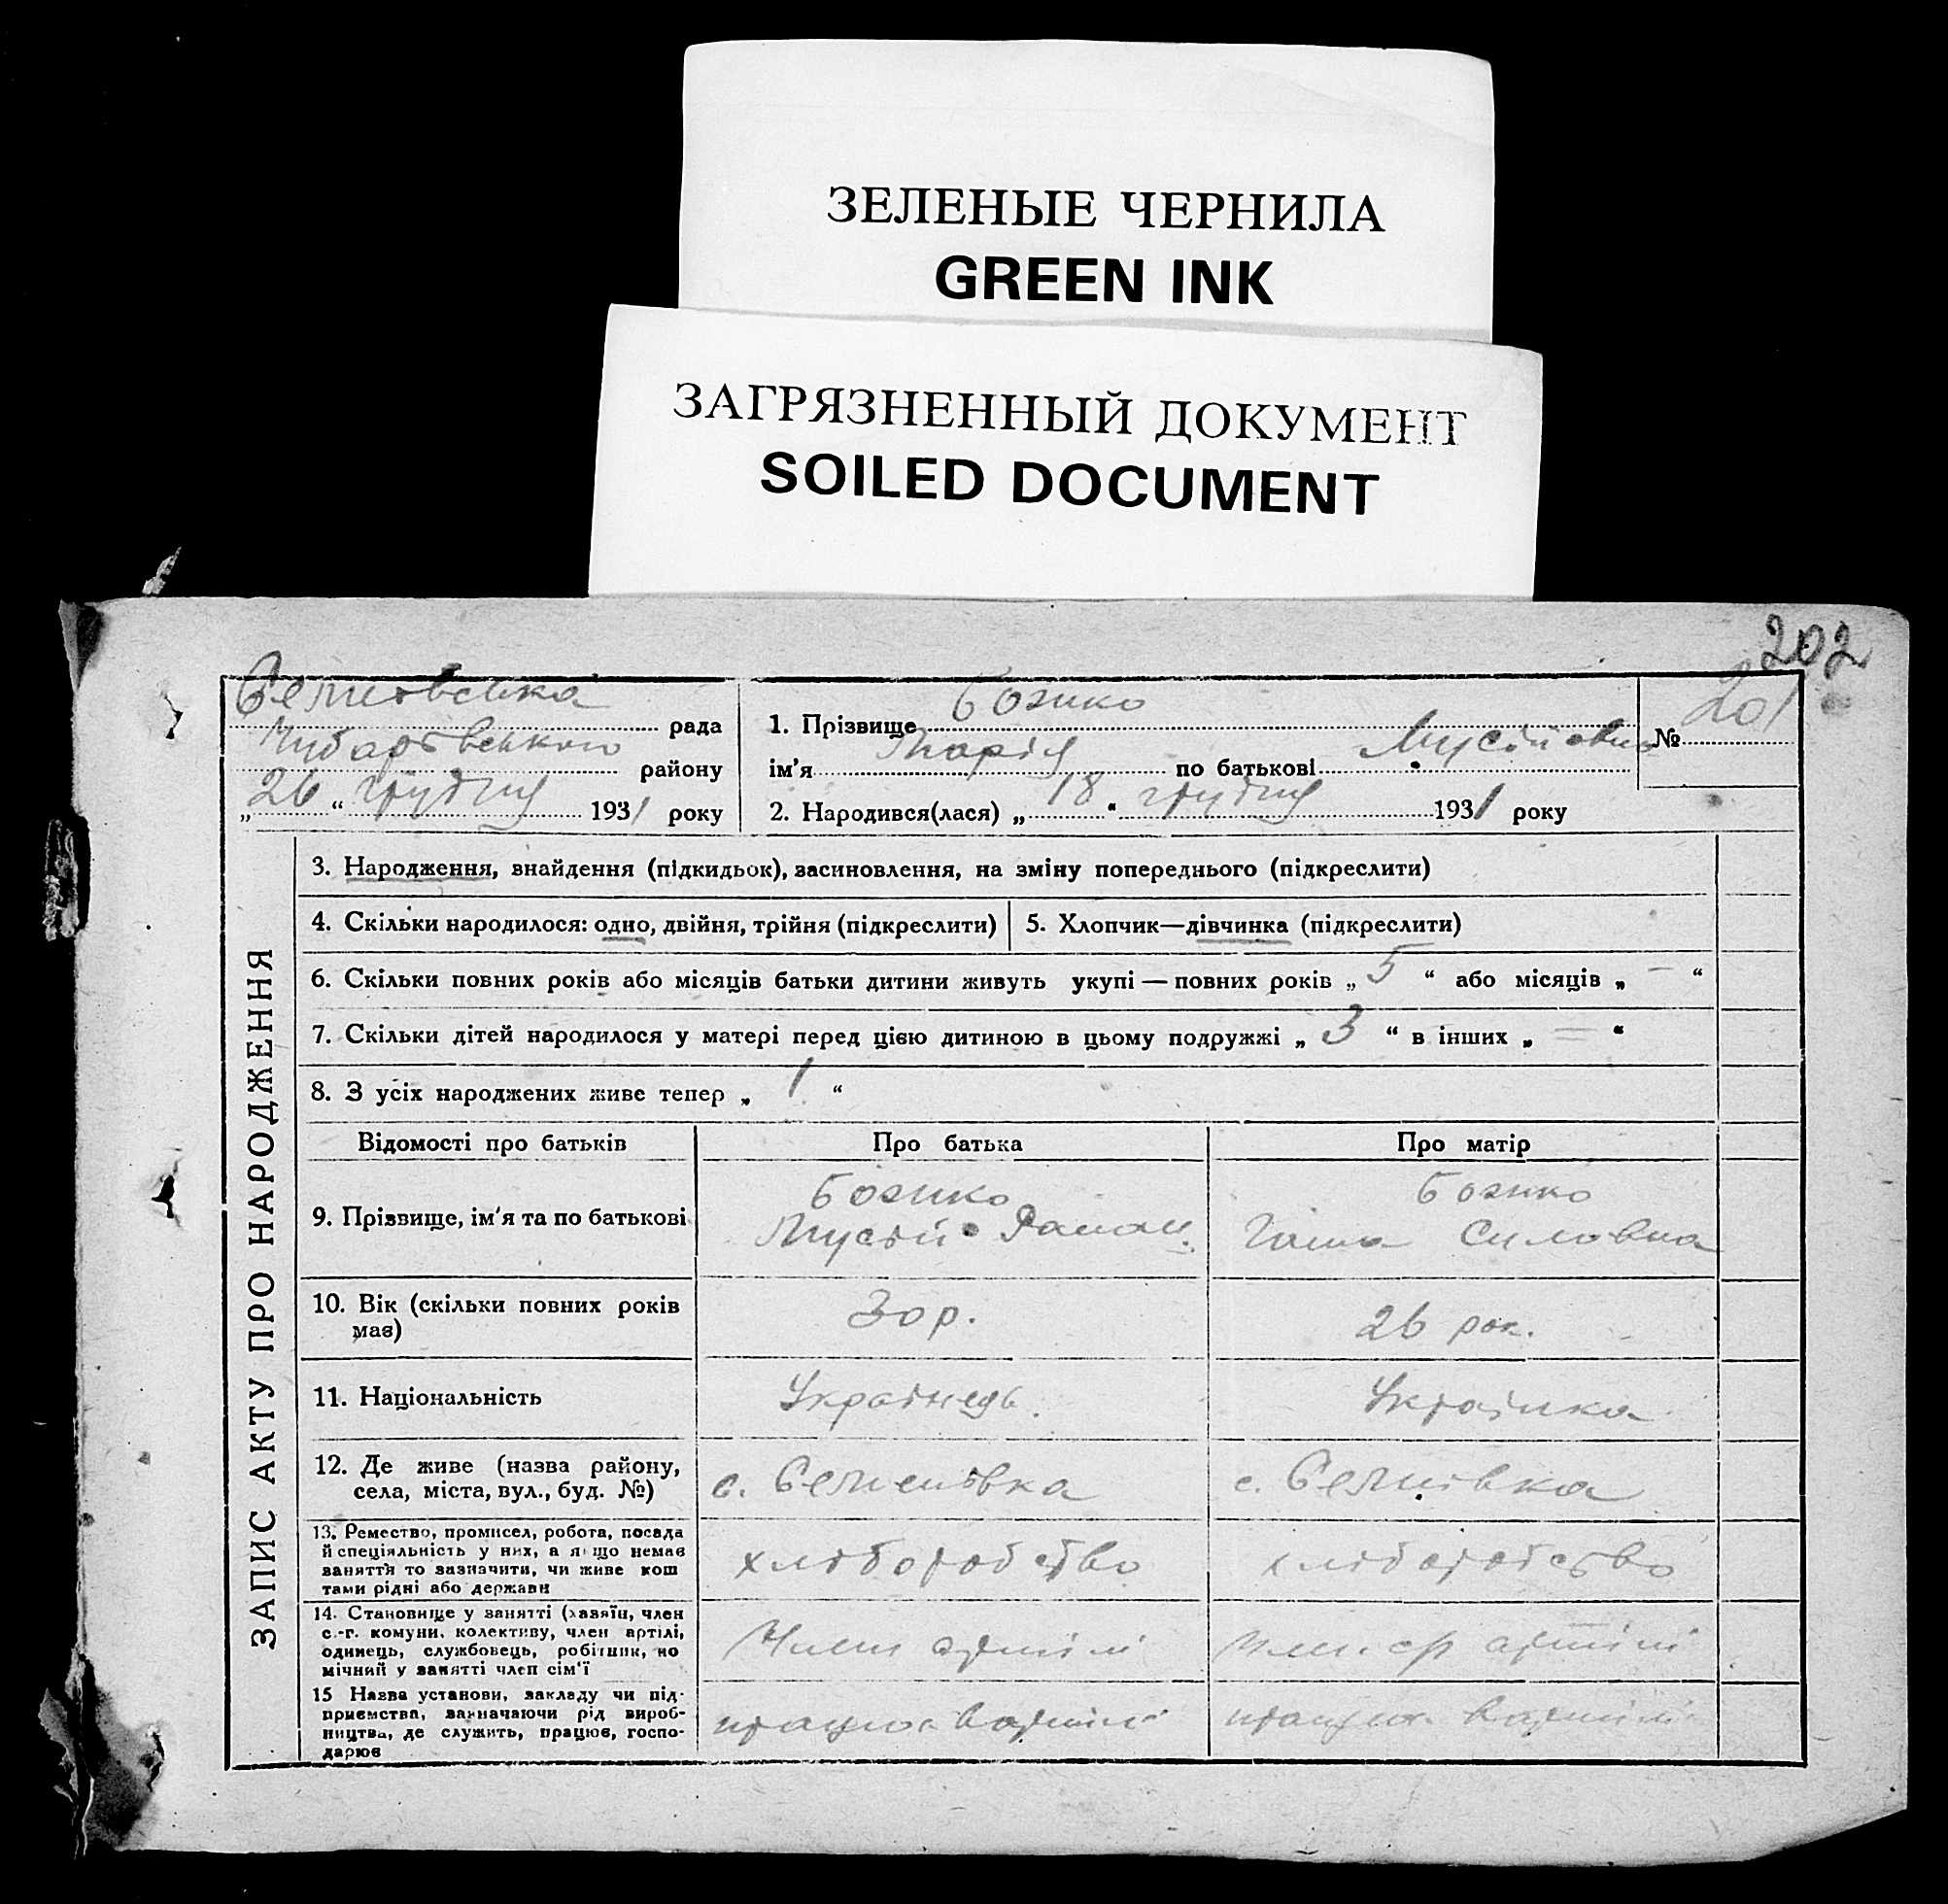 ЗЕЛЕНЫЕ ЧЕРНИЛА
GREEN INK
ЗАГРЯЗНЕННЫЙ ДОКУМЕНТ
SOILED DOCUMENT
202
рада
району
„26“ грудня 1931 року
1. Прізвище Божко
ім'я Марія по батькові Мусіївна
2. Народився(лася) „18“ грудня 1931 року
№ 201
ЗАПИС АКТУ ПРО НАРОДЖЕННЯ
3. Народження, внайдення (підкидьок), засиновлення, на зміну попереднього (підкреслити)
4. Скільки народилося: одно, двійня, трійня (підкреслити)
5. Хлопчик—дівчинка (підкреслити)
6. Скільки повних років або місяців батьки дитини живуть укупі — повних років „5“ або місяців „–“
7. Скільки дітей народилося у матері перед цією дитиною в цьому подружжі „3“ в інших „=“
8. З усіх народжених живе тепер „1“
Відомості про батьків
Про батька
Про матір
9. Прізвище, ім'я та по батькові
Божко
Мусій
Божко
Силовна
10. Вік (скільки повних років
має)
30 р.
26 рок.
11. Національність
Українець.
Українка
12. Де живе (назва району,
села, міста, вул., буд. №)
с.
с.
13. Ремество, промисел, робота, посада
й спеціяльність у них, а якщо немає
заняття то зазначити, чи живе кош
тами рідні або держави
хліборобство
хліборобство
14. Становище у занятті (хазяїн, член
с.-г. комуни, колективу, член артілі,
одинець, службовець, робітник, по
мічний у занятті член сім'ї
Член артілі
член артілі
15 Назва установи, закладу чи під-
приємства, зазначаючи рід вироб-
ництва, де служить, працює, госпо-
дарює
працює в артілі
працює в артілі